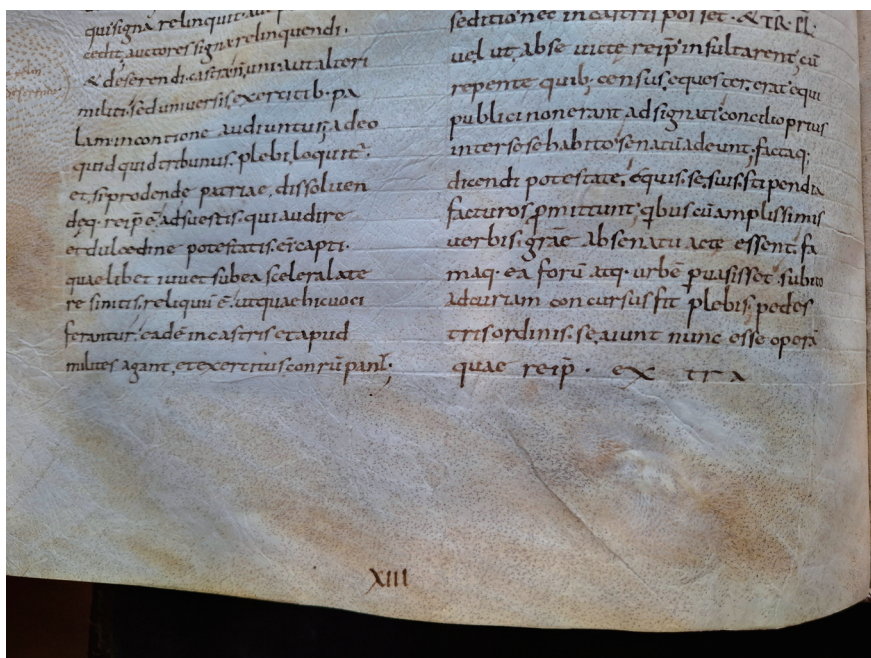 qui signa relinquit aut
cedit, auctores signa relinquendi.
& deserendi castra, n, uni, aut alteri
militi, sed universis, exercitib. pa
lam in contione audiuntur, adeo
quid quid tribunus, plebi, loquit.
et, si prodende patriae, dissoluen
deq. reip̄ ē, adsuestis. qui audire
et dulcedine potestatis eī capti.
quae libet iuvet sub ea scelera late
re sinitis, reliquū ē. ut quae hic voci
ferantur. eadē in castris et apud
milites agant, et exercitus, con rū pant;
seditionec in castris posset. & TR. PL.
vel ut, ab se victe reip̄ insultarent, cū
repente quib; census, equester. erat equi
publici non erant adsignati concilio prius
inter sese habito senatū adeunt. factaq;
dicendi potestate, equis. se, suis. stipendia
facturos, pmittunt; qbus cū amplissimis
verbis. grāe ab senatu acte essent. fa
maq. ea forū atq. urbē pvasisset. subito
ad curiam con cursus fit plebis, pedes
tris ordinis. se, aiunt nunc esse operā
quae reip̄ . ex tra
XIII